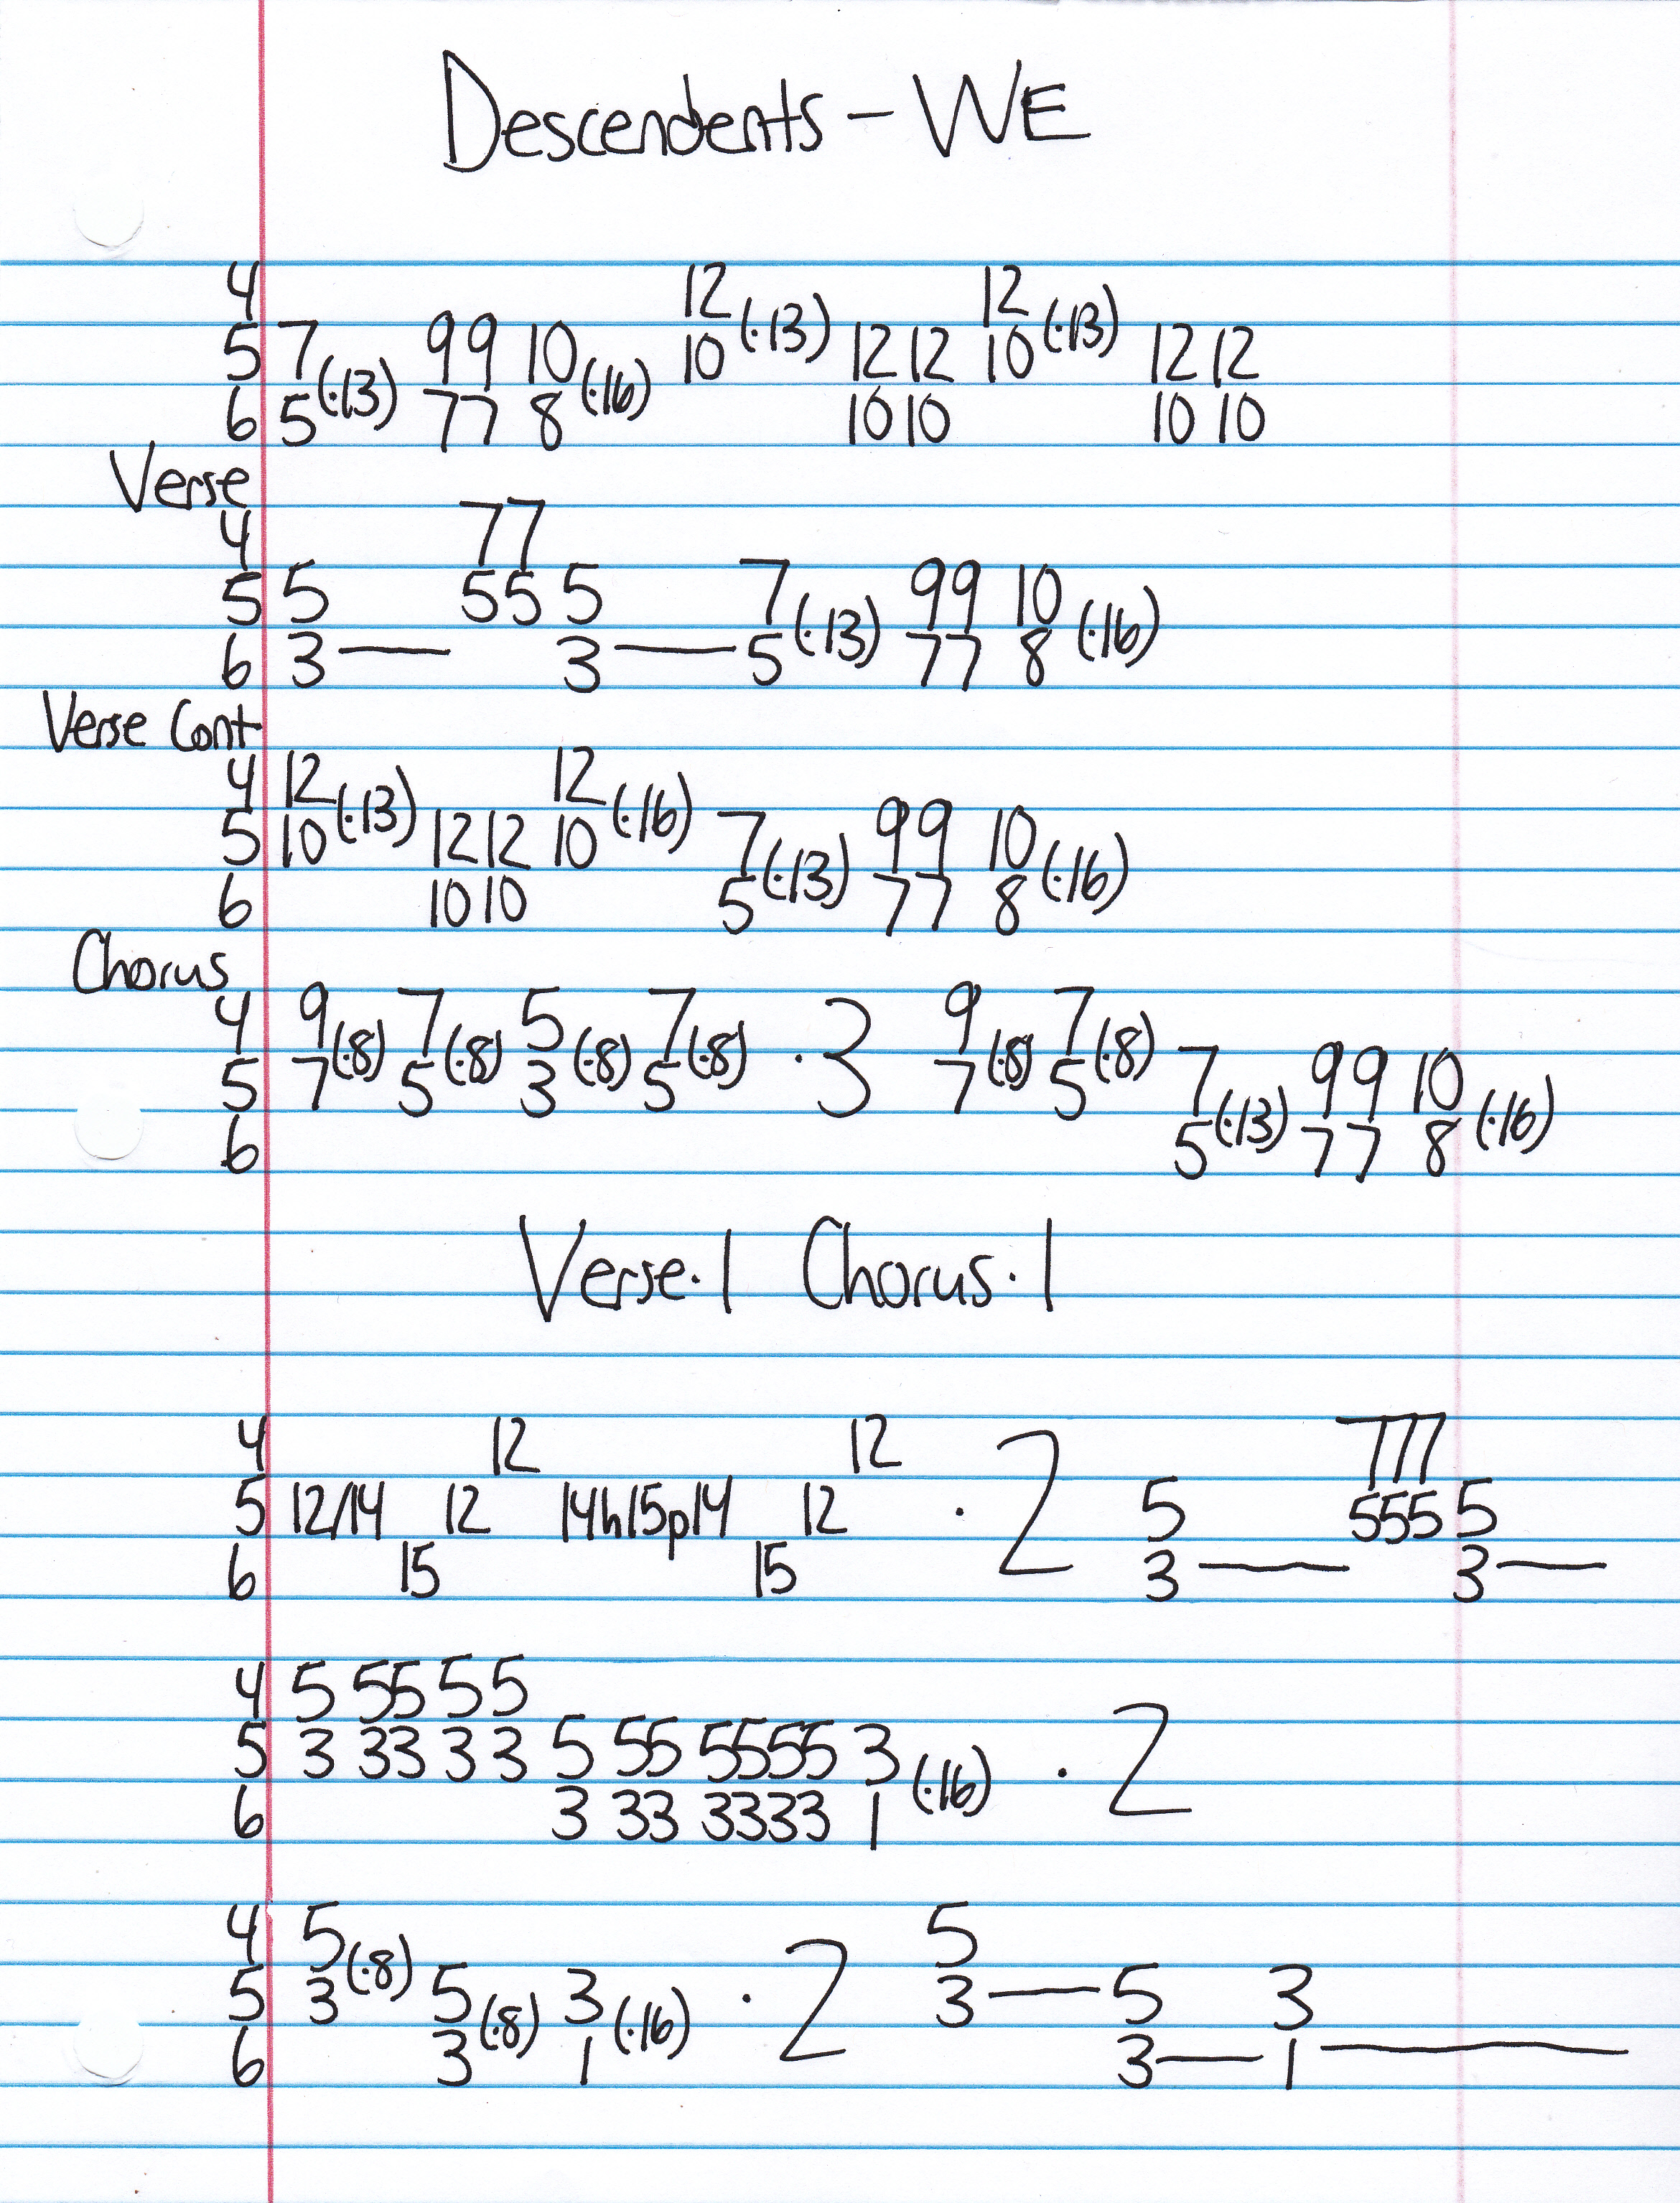 Descendents - WE
4 12 12
5 7 (·13) 99 10 (·16) 10 (·13) 12 12 10 (·13) 12 12
6 5 77 8 10 10 10 10
Verse
4 77
5 5 55 5 7 99 10
6 3 — 3 — 5 (·13) 77 8 (·16)
Verse Cont
4 12 (·13) 12 (·16)
5 10 12 12 10 7 99 10
6 10 10 5 (·13) 77 8 (·16)
Chorus
4 9 7 5 7 9 7
5 7 (·8) 5 (·8) 3 (·8) 5 (·8) ·3 7 (·8) 5 (·8) 7 99 10
6 5 (·13) 77 8 (·16)
Verse·1 Chorus·1
4 12 12 777
5 12/14 12 14h15p14 12 ·2 5 555 5
6 15 15 3 — 3 —
4 5 55 5 5
5 3 33 3 3 5 55 5555 3 (·16) ·2
6 3 33 3333 1
4 5 5
5 3 (·8) 5 3 ·2 3 — 5 3
6 3 (·8) 1 (·16) 3 — 1 —